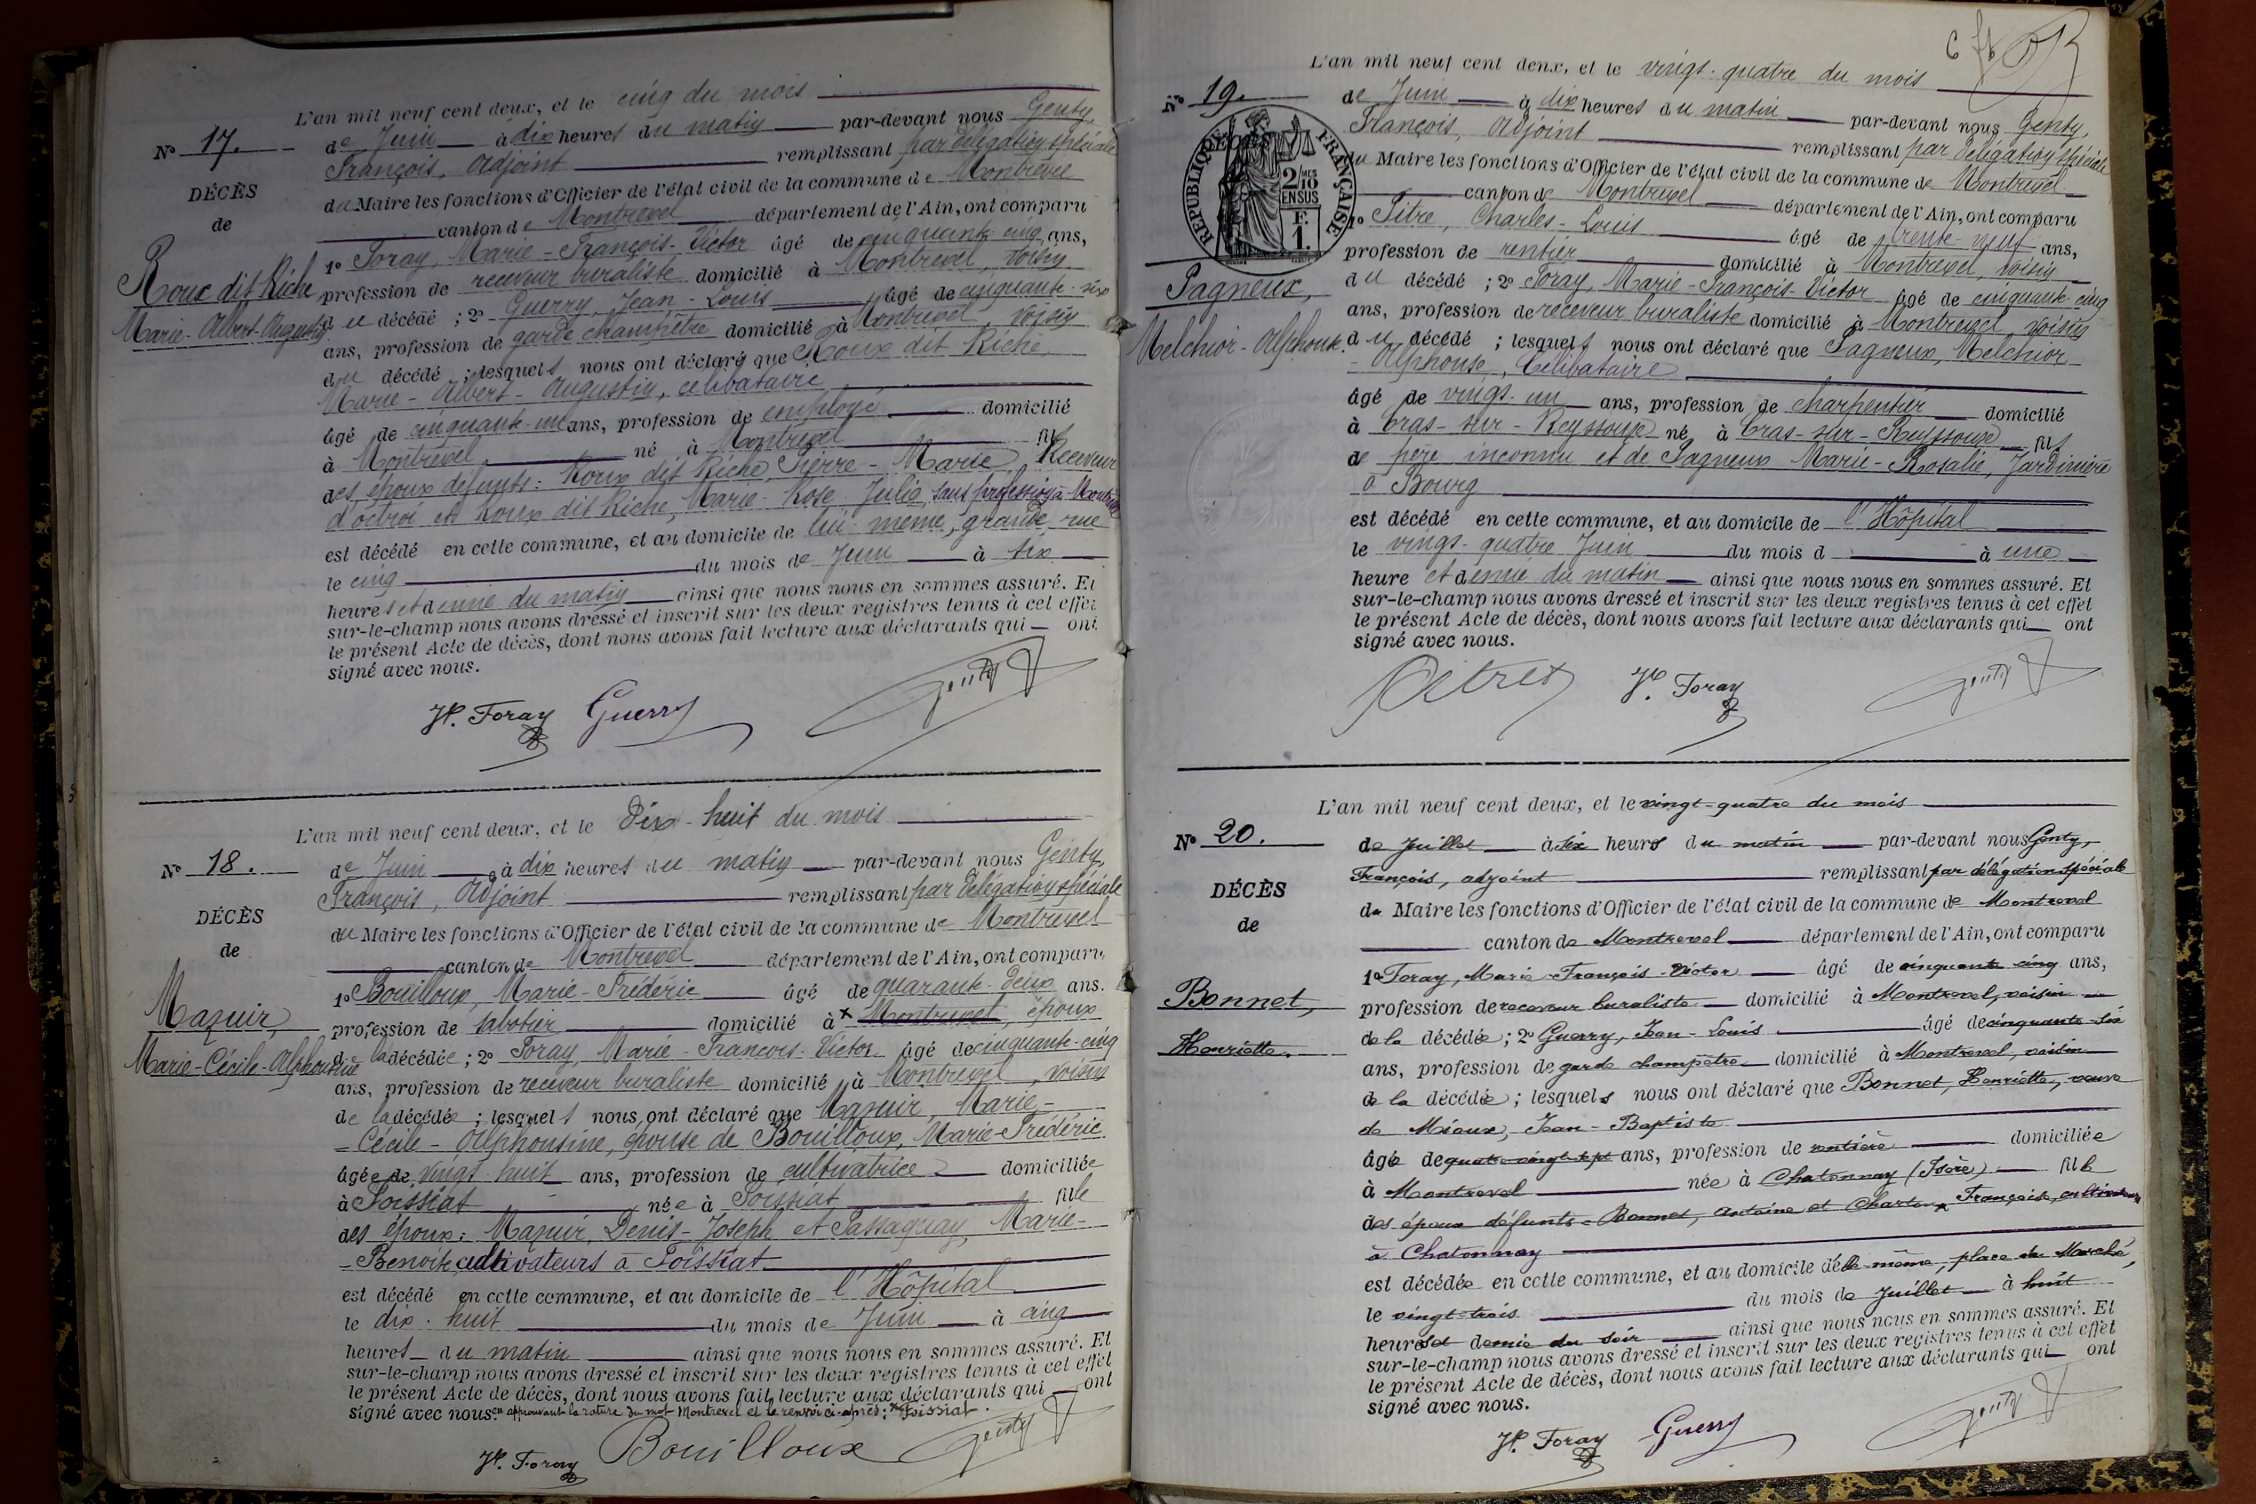 L'an mil neuf cent deux, et le cinq du mois
N° 17.
de Juin à dix heures du matin par-devant nous Genty,
François, Adjoint remplissant par délégation spéciale
DÉCÈS
du Maire les fonctions d'Officier de l'état civil de la commune de Montrevel
de
canton de Montrevel département de l'Ain, ont comparu
1° Foray, Marie-François-Victor âgé de cinquante cinq ans,
Roux dit Riche
profession de receveur buraliste domicilié à Montrevel, voisin
Marie-Albert-Augustin
du décédé ; 2° Guerry, Jean-Louis âgé de cinquante-six
ans, profession de garde champêtre domicilié à Montrevel voisin
du décédé ; lesquels nous ont déclaré que Roux dit Riche,
Marie-Albert-Augustin, célibataire
âgé de cinquante-un ans, profession de employé domicilié
à Montrevel né à Montrevel fils
des époux défunts: Roux dit Riche, Pierre-Marie Receveur
d'octroi et Roux dit Riche, Marie-Rose-Julie, sans profession à Montrevel
est décédé en cette commune, et au domicile de lui-même, grande rue
le cinq du mois de Juin à six
heures et demie du matin ainsi que nous nous en sommes assuré. Et
sur-le-champ nous avons dressé et inscrit sur les deux registres tenus à cet effet
le présent Acte de décès, dont nous avons fait lecture aux déclarants qui ont
signé avec nous.
Foray Guerry Genty
L'an mil neuf cent deux, et le Dix-huit du mois
N° 18.
de Juin à dix heures du matin par-devant nous Genty,
François, Adjoint remplissant par délégation spéciale
DÉCÈS
du Maire les fonctions d'Officier de l'état civil de la commune de Montrevel
de
canton de Montrevel département de l'Ain, ont comparu
1° Bouilloux, Marie-Frédéric âgé de quarante-deux ans.
Mazuir,
profession de sabotier domicilié à x Montrevel, époux
Marie-Cécile-Alphonsine
de la décédée ; 2° Foray, Marie-François-Victor âgé de cinquante-cinq
ans, profession de receveur buraliste domicilié à Montrevel, voisin
de la décédée ; lesquels nous ont déclaré que Mazuir, Marie-
-Cécile-Alphonsine, épouse de Bouilloux, Marie-Frédéric
âgée de vingt huit ans, profession de cultivatrice domiciliée
à Foissiat née à Foissiat fille
des époux: Mazuir, Denis-Joseph et Passaquay, Marie-
-Benoite cultivateurs à Foissiat
est décédé en cette commune, et au domicile de l'Hôpital
le dix-huit du mois de Juin à cinq
heures du matin ainsi que nous nous en sommes assuré. Et
sur-le-champ nous avons dressé et inscrit sur les deux registres tenus à cet effet
le présent Acte de décès, dont nous avons fait lecture aux déclarants qui ont
signé avec nous. en approuvant la rature du mot Montrevel et le renvoi ci-après: x Foissiat.
Foray Bouilloux Genty
L'an mil neuf cent deux, et le vingt-quatre du mois
N° 19.
de Juin à dix heures du matin par-devant nous Genty,
François, Adjoint remplissant par délégation spéciale
RÉPUBLIQUE FRANÇAISE
2/10 MES EN SUS
F. 1.
du Maire les fonctions d'Officier de l'état civil de la commune de Montrevel
canton de Montrevel département de l'Ain, ont comparu
1° Pitre, Charles-Louis âgé de trente neuf ans,
profession de rentier domicilié à Montrevel, voisin
Pagneux,
du décédé ; 2° Foray, Marie-François-Victor âgé de cinquante-cinq
ans, profession de receveur buraliste domicilié à Montrevel, voisin
Melchior-Alphonse.
du décédé ; lesquels nous ont déclaré que Pagneux, Melchior-
-Alphonse, Célibataire
âgé de vingt-un ans, profession de charpentier domicilié
à Cras-sur-Reyssouze né à Cras-sur-Reyssouze fils
de père inconnu et de Pagneux Marie-Rosalie, Jardinière
à Bourg
est décédé en cette commune, et au domicile de l'Hôpital
le vingt-quatre Juin du mois d à une
heure et demie du matin ainsi que nous nous en sommes assuré. Et
sur-le-champ nous avons dressé et inscrit sur les deux registres tenus à cet effet
le présent Acte de décès, dont nous avons fait lecture aux déclarants qui ont
signé avec nous.
Foray Genty
L'an mil neuf cent deux, et le vingt-quatre du mois
N° 20.
de Juillet à six heures du matin par-devant nous Genty,
François, adjoint remplissant par délégation spéciale
DÉCÈS
du Maire les fonctions d'Officier de l'état civil de la commune de Montrevel
de
canton de Montrevel département de l'Ain, ont comparu
1° Foray, Marie-François-Victor âgé de cinquante cinq ans,
Bonnet,
profession de receveur buraliste domicilié à Montrevel, voisin
Henriette.
de la décédée ; 2° Guerry, Jean-Louis âgé de cinquante-six
ans, profession de garde champêtre domicilié à Montrevel, voisin
de la décédée ; lesquels nous ont déclaré que Bonnet, Henriette, veuve
de Mioux, Jean-Baptiste
âgée de quatre-vingt-sept ans, profession de rentière domiciliée
à Montrevel née à Chatonnay (Isère) fille
des époux défunts: Bonnet, Antoine et Charton, Françoise, cultivateurs
à Chatonnay
est décédée en cette commune, et au domicile d'elle-même, place du Marché,
le vingt-trois du mois de Juillet à huit
heures et demie du soir ainsi que nous nous en sommes assuré. Et
sur-le-champ nous avons dressé et inscrit sur les deux registres tenus à cet effet
le présent Acte de décès, dont nous avons fait lecture aux déclarants qui ont
signé avec nous.
Foray Guerry Genty